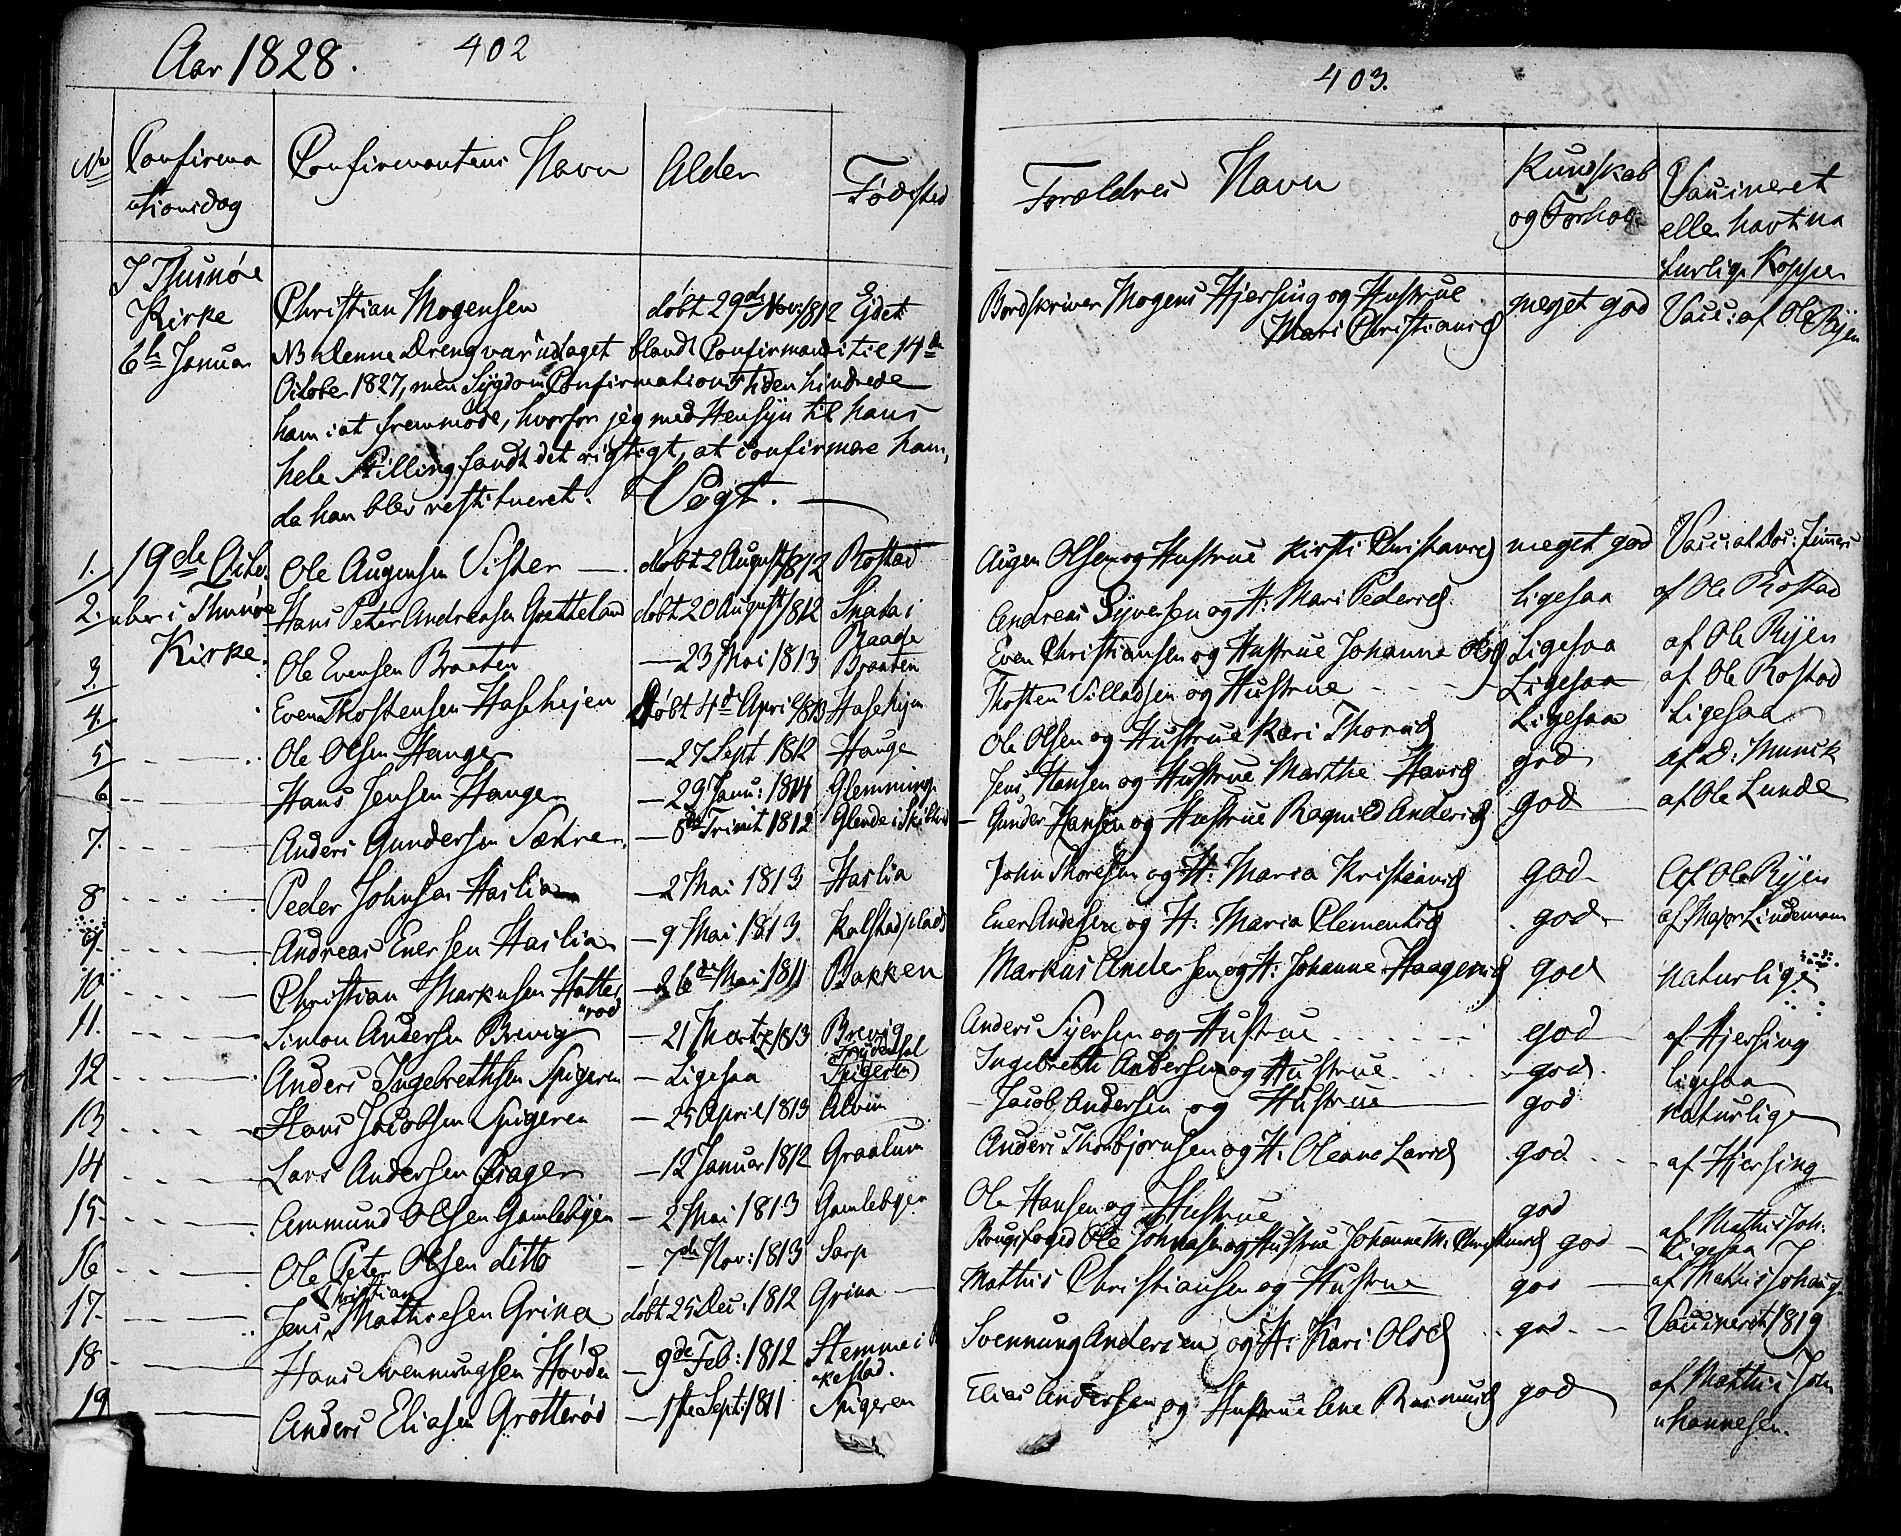 Aar 1828. 402
No Confirma Confirmantens Navn Alder Fødsted
tionsdag
I Thunøe
Kirke Christian Mogensen døbt 29de Nov: 1812 Ejdet
6te Januar NB denne Dreng var udtaget blandt Confirmandi til 14de
October 1827, men Sygdom i Confirmationstiden hindrede
ham i at fremmøde, hvorfor jeg med Hensyn til hans
hele Stilling fandt det rigtigt, at confirmere ham,
da han blev restitueret. Vogt.
1. 19de Octo Ole Augensen Vister døbt 2 August 1812 Rostad
2. uber i Thunøe Hans Peter Andreasen Grøtteland døbt 20 August 1812 i
Kirke. Raade
3. Ole Evensen Braaten — 23 Mai 1813 Braaten
4. Even Thostensen Haslehejen Døbt 4de April 1813 Haslehejn
5 Ole Olsen Hauge — 27 Sept 1812 Hauge
6 Hans Jensen Hauge — 29 Janu: 1814 Glemminge
7. Anders Gundersen Sætre — 8de Trinit 1812 Glende i
8 Peder Johnsen Haslia — 2 Mai 1813 Haslia
9. Andreas Enersen Haslia — 9 Mai 1813 Kalstadplads
10 Christian Markusen Hatte — 26de Mai 1811 Bakken
rød
11. Simon Andersen Brevig — 21 Martz 1813 Brevig
12 Anders Ingebrethsen Spigeren — Ligesaa Spigeren
13 Hans Jacobsen Spigeren — 25 April 1813 Alvim
14 Lars Andersen Prager — 12 Januar 1812 Graalum
15. Ammund Olsen Gamlebyen — 2 Mai 1813 Gamlebyen
16 Ole Peter Olsen ditto — 7de Nov: 1813 Sarp
Christian
17. Jens Mathiesen Grina døbt 25 Dec: 1812 Grina
18 Hans Svennungsen Hovden — 9de Feb: 1812 Stemme i
kestad.
19 Anders Eliasen Grøtterød — 1ste Sept: 1811 Spigeren
403.
Forældres Navn Kundskab Vaccineret
og Forhold eller havt na
turlige Kopper
Bordskriver Mogens Hjersing og Hustrue meget god Vacc: af Ole Ryen
Mari Christiansd
Augen Olsen og Hustrue Kirsti Christensd meget god Vacc: af Doc:
Andreas Syversen og H: Mari Pedersd Ligesaa af Ole Rostad
Even Christiansen og Hustrue Johanne Olsd Ligesaa af Ole Ryen
Thosten Villadsen og Hustrue Ligesaa af Ole Rostad
Ole Olsen og Hustrue Kari Thorsd Ligesaa Ligesaa
Jens Hansen og Hustrue Marthe Hansd god af D: Munck
Gunder Hansen og Hustrue Ragnild Andersd god af Ole Lunde
John Thoresen og H: Maria Kristiansd god Af Ole Ryen
Ener Andersen og H: Maria Clementsd god af Major Lindeman
Markus Andersen og H: Johanne Haagensd god naturlige
Anders Syersen og Hustrue god af Hjersing
Ingebreth Andersen og Hustrue god ligesaa
Jacob Andersen og Hustrue god naturlige
Anders Thorbjørnsen og H: Oleane Larsd god af Hjersing
Ole Hansen og Hustrue god af Mathis Joh:
Brugsfoged Ole Johnsen og Hustrue Johanne M: Christiansd god Ligesaa
Mathis Christiansen og Hustrue god af Mathis Johang
Svennung Andersen og H: Kari Olsd god Vaccineret 1819
Elias Andersen og Hustrue Ane Rasmusd god af Mathis Joh
uhannesen.